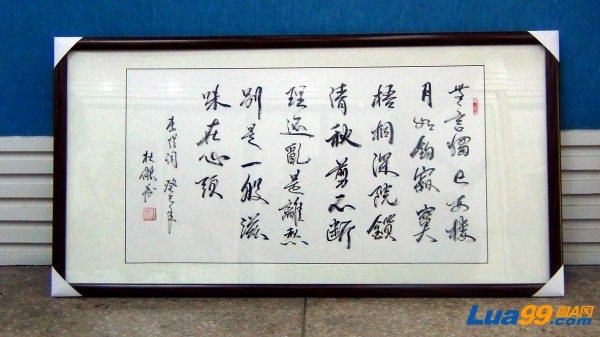 無言獨上西樓
月如鈎寂寞
梧桐深院鎖
清秋剪不断
理還亂是離愁
別是一般滋
味在心頭
李煜詞 癸巳年
Lua99.com